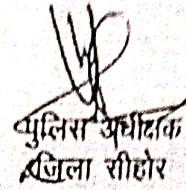 पुलिस अधीक्षक
जिला सीहोर